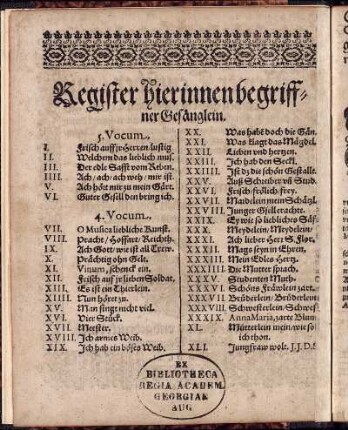 Register hierinnen begriff-
ner Gesänglein.
5. Vocum.
I. Frisch auff jr Herren lustig
II. Welchem das lieblich mus.
III. Der edle Safft vom Reben.
IIII. Ach/ ach/ ach weh/ mir ist.
V. Ach hört mir zu mein
VI. Guter Gesell den bring ich.
4. Vocum.
VII. O Musica liebliche Kunst.
VIII. Pracht/ Hoffart/ Reichth.
IX. Ach Gott/ wie ist all
X. Prächtig ohn Gelt.
XI. Vinum, schenck ein.
XII. Frisch auff jr lieben Soldat.
XIII. Es ist ein Thierlein.
XIIII. Nun höret zu.
XV. Man singt nicht viel.
XVI. Vier Stück.
XVII. Meister.
XVIII. Ich armes Weib.
XIX. Ich hab ein böses Weib.
XX. Was habt doch die Gän.
XXI. Was klagt das Mägdel.
XXII. Lieben und hertzen.
XXIII. Ich hab den Seckl.
XXIIII. Ist dz die schön Gestalt.
XXV. Auß Schreiber uñ Stud.
XXVI. Frisch frölich frey.
XXVII. Maidelein mein Schätzl.
XXVIII. Junger Gsell
XXIX. Ey wie so liebliches
XXX. Meydelein/ Meydelein/
XXXI. Ach lieber Herr S. Flor.
XXXII. Mags seyn in Ehren.
XXXIII. Mein Edles Hertz.
XXXIIII. Die Mutter sprach.
XXXV. Studenten Muth.
XXXVI. Schöns Fräwlein zart.
XXXVII. Brüderlein/ Brüderlein/
XXXVIII. Schwesterlein/
XXXIX. Anna Maria, zarte Blum
XL. Mütterlein mein/ wie sol
ich thon.
XLI. Jungfraw wolt. J.J.D.
EX
BIBLIOTHECA
REGIA ACADEM.
GEORGIAE
AUG.